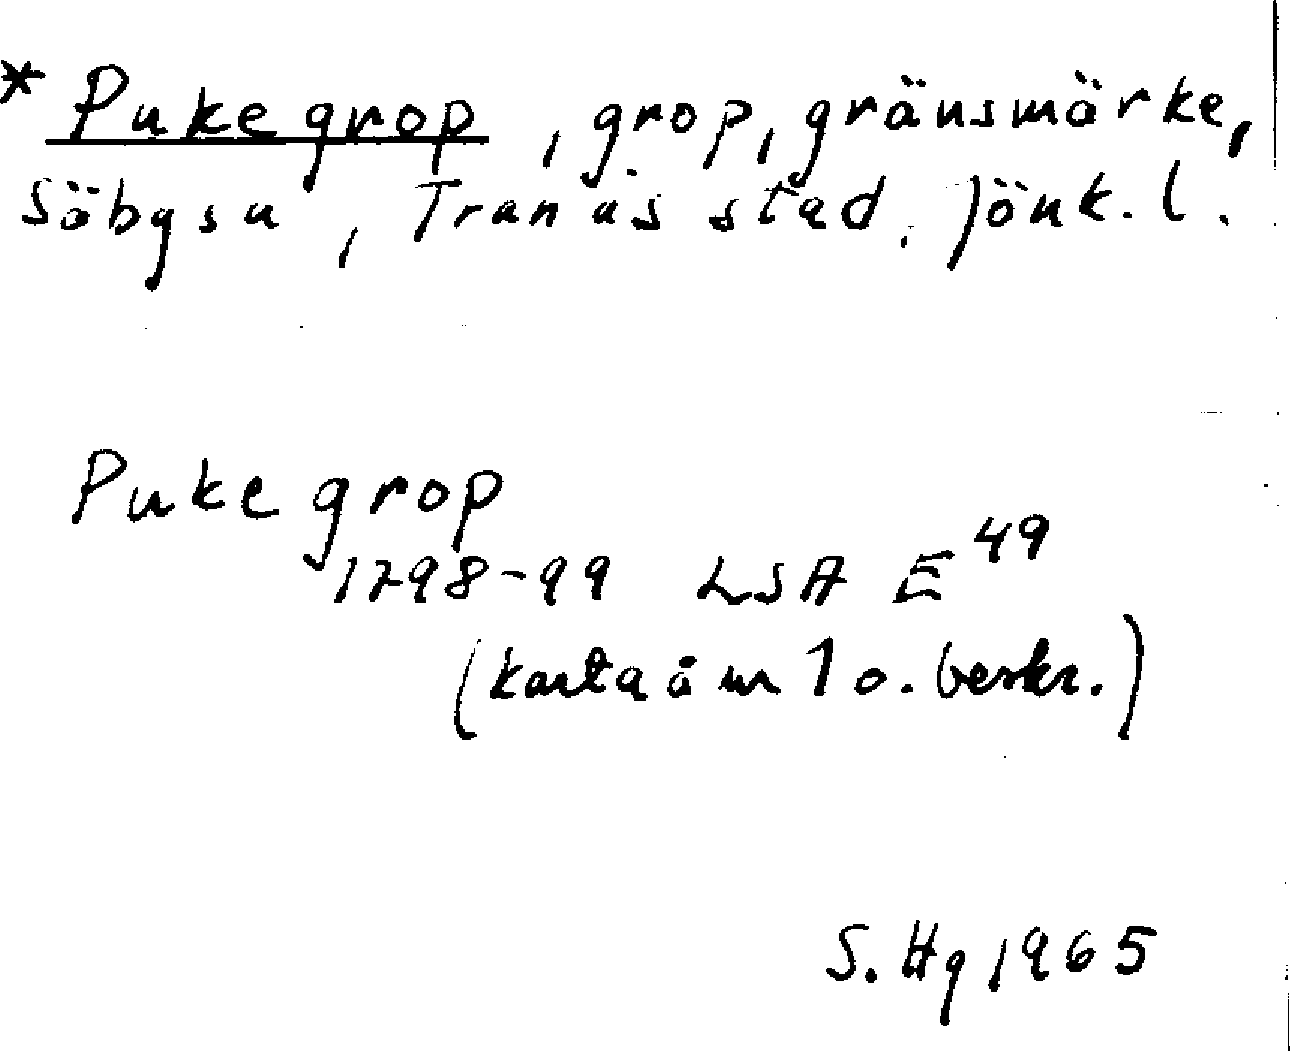 * Pukegrop, grop, gränsmärke,
Säbysu, Tranås stad, Jönk. l.
Pukegrop
1798-99 LSA E 49
(karta å nr 1 o. beskr.)
S. Hg 1965